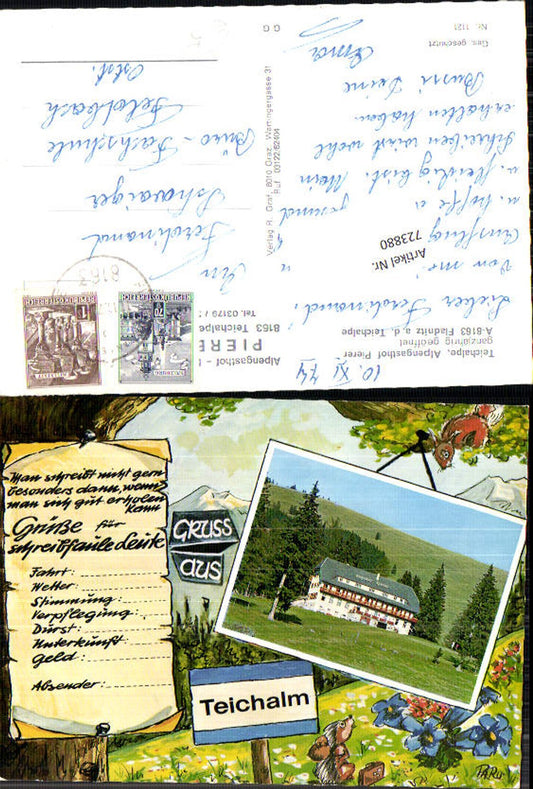 Teichalpe, Alpengasthof Pierer
ganzjährig geöffnet
A-8163 Fladnitz a. d. Teichalpe
10. XI 74
Lieber Ferdinand!
Von
Ausflug
u. hoffe
gesund
u. fleißig bist. Mein
Schreiben wirst wohl
erhalten haben.
Bussi Deine
Oma
Ges. geschützt
Nr. 1121
Artikel Nr.
723880
Verlag R. Graf, 8010 Graz, Wartingergasse 31
Ruf 03122/62404
G G
Alpengasthof -
PIERE
8163 Teichalpe
Tel. 03179 /
REPUBLIK ÖSTERREICH
8163
An
Ferdinand
Schwaiger
Büro - Fachschule
Feldbach
Oststr.
Man schreibt nicht gern
besonders dann, wenn
man sich gut erholen
kann
Grüße für
schreibfaule Leute
Fahrt:
Wetter:
Stimmung:
Verpflegung:
Durst:
Unterkunft:
Geld:
Absender:
GRUSS
AUS
Teichalm